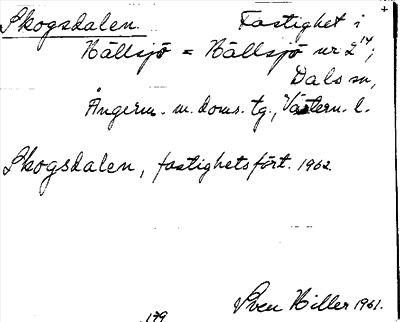 Skogsdalen. Fastighet i
Hällsjö = Hällsjö nr 2¹⁴;
Dals sn,
Ångerm. m. doms. tg., Västern. l.
Skogsdalen, fastighetsfört. 1962.
Sven Hiller 1961.
179